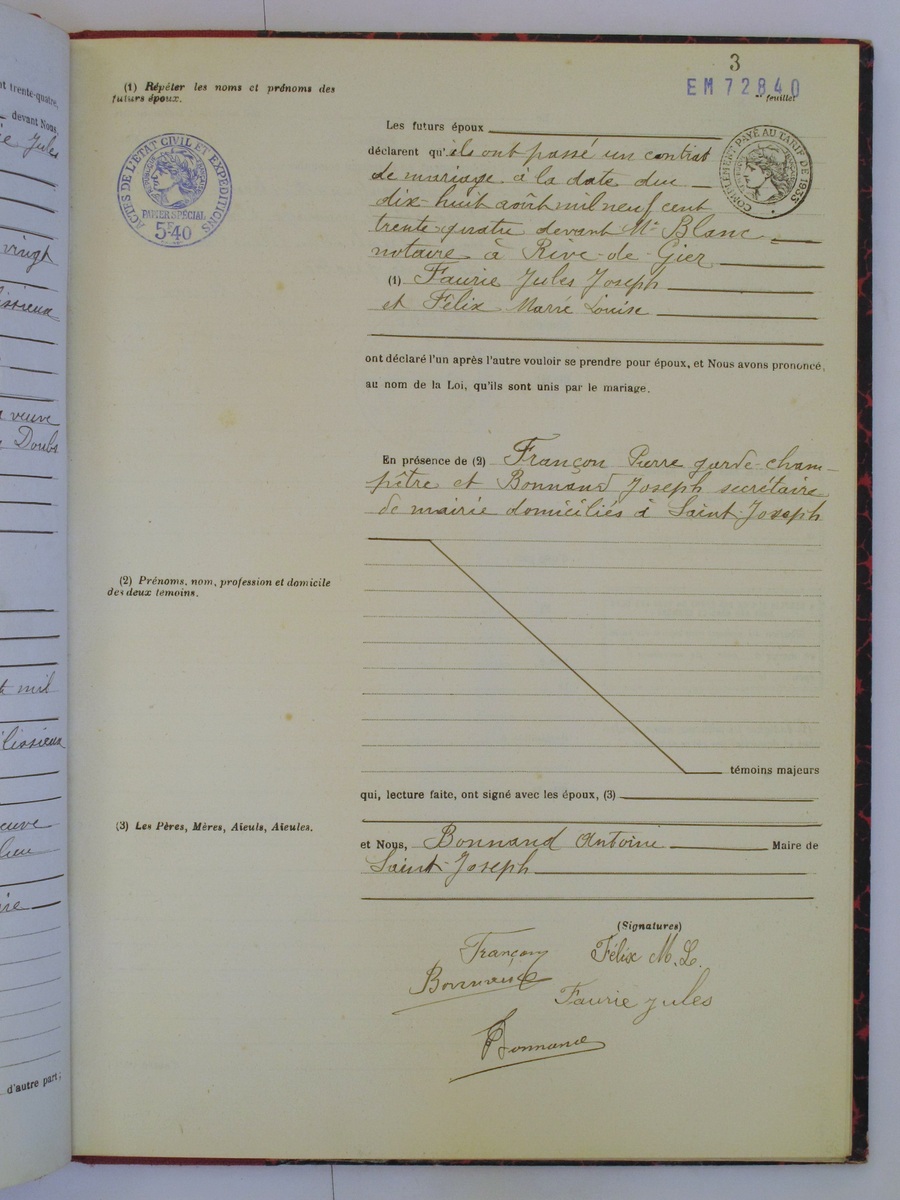 nt trente-quatre,
devant Nous
Jules
vingt
veuve
Doubs
mil
lieu
d'autre part;
3
EM 72840
feuillet
(1) Répéter les noms et prénoms des
futurs époux.
ACTES DE L'ETAT CIVIL ET EXPEDITIONS
PAPIER SPÉCIAL
5F40
COMPLÉMENT PAYÉ AU TARIF DE 1933
Les futurs époux
déclarent qu'ils ont passé un contrat
de mariage à la date du
dix-huit août mil neuf cent
trente-quatre devant Me Blanc
notaire à Rive-de-Gier
(1) Faurie Jules Joseph
et Félix Marie Louise
ont déclaré l'un après l'autre vouloir se prendre pour époux, et Nous avons prononcé,
au nom de la Loi, qu'ils sont unis par le mariage.
En présence de (2) Françon Pierre garde-cham-
pêtre et Bonnand Joseph secrétaire
de mairie domiciliés à Saint-Joseph
(2) Prénoms, nom, profession et domicile
des deux témoins.
témoins majeurs
qui, lecture faite, ont signé avec les époux, (3)
(3) Les Pères, Mères, Aïeuls, Aïeules.
et Nous, Bonnand Antoine Maire de
Saint-Joseph
(Signatures)
Françon Félix M. L.
Bonnand
Faurie Jules
Bonnand